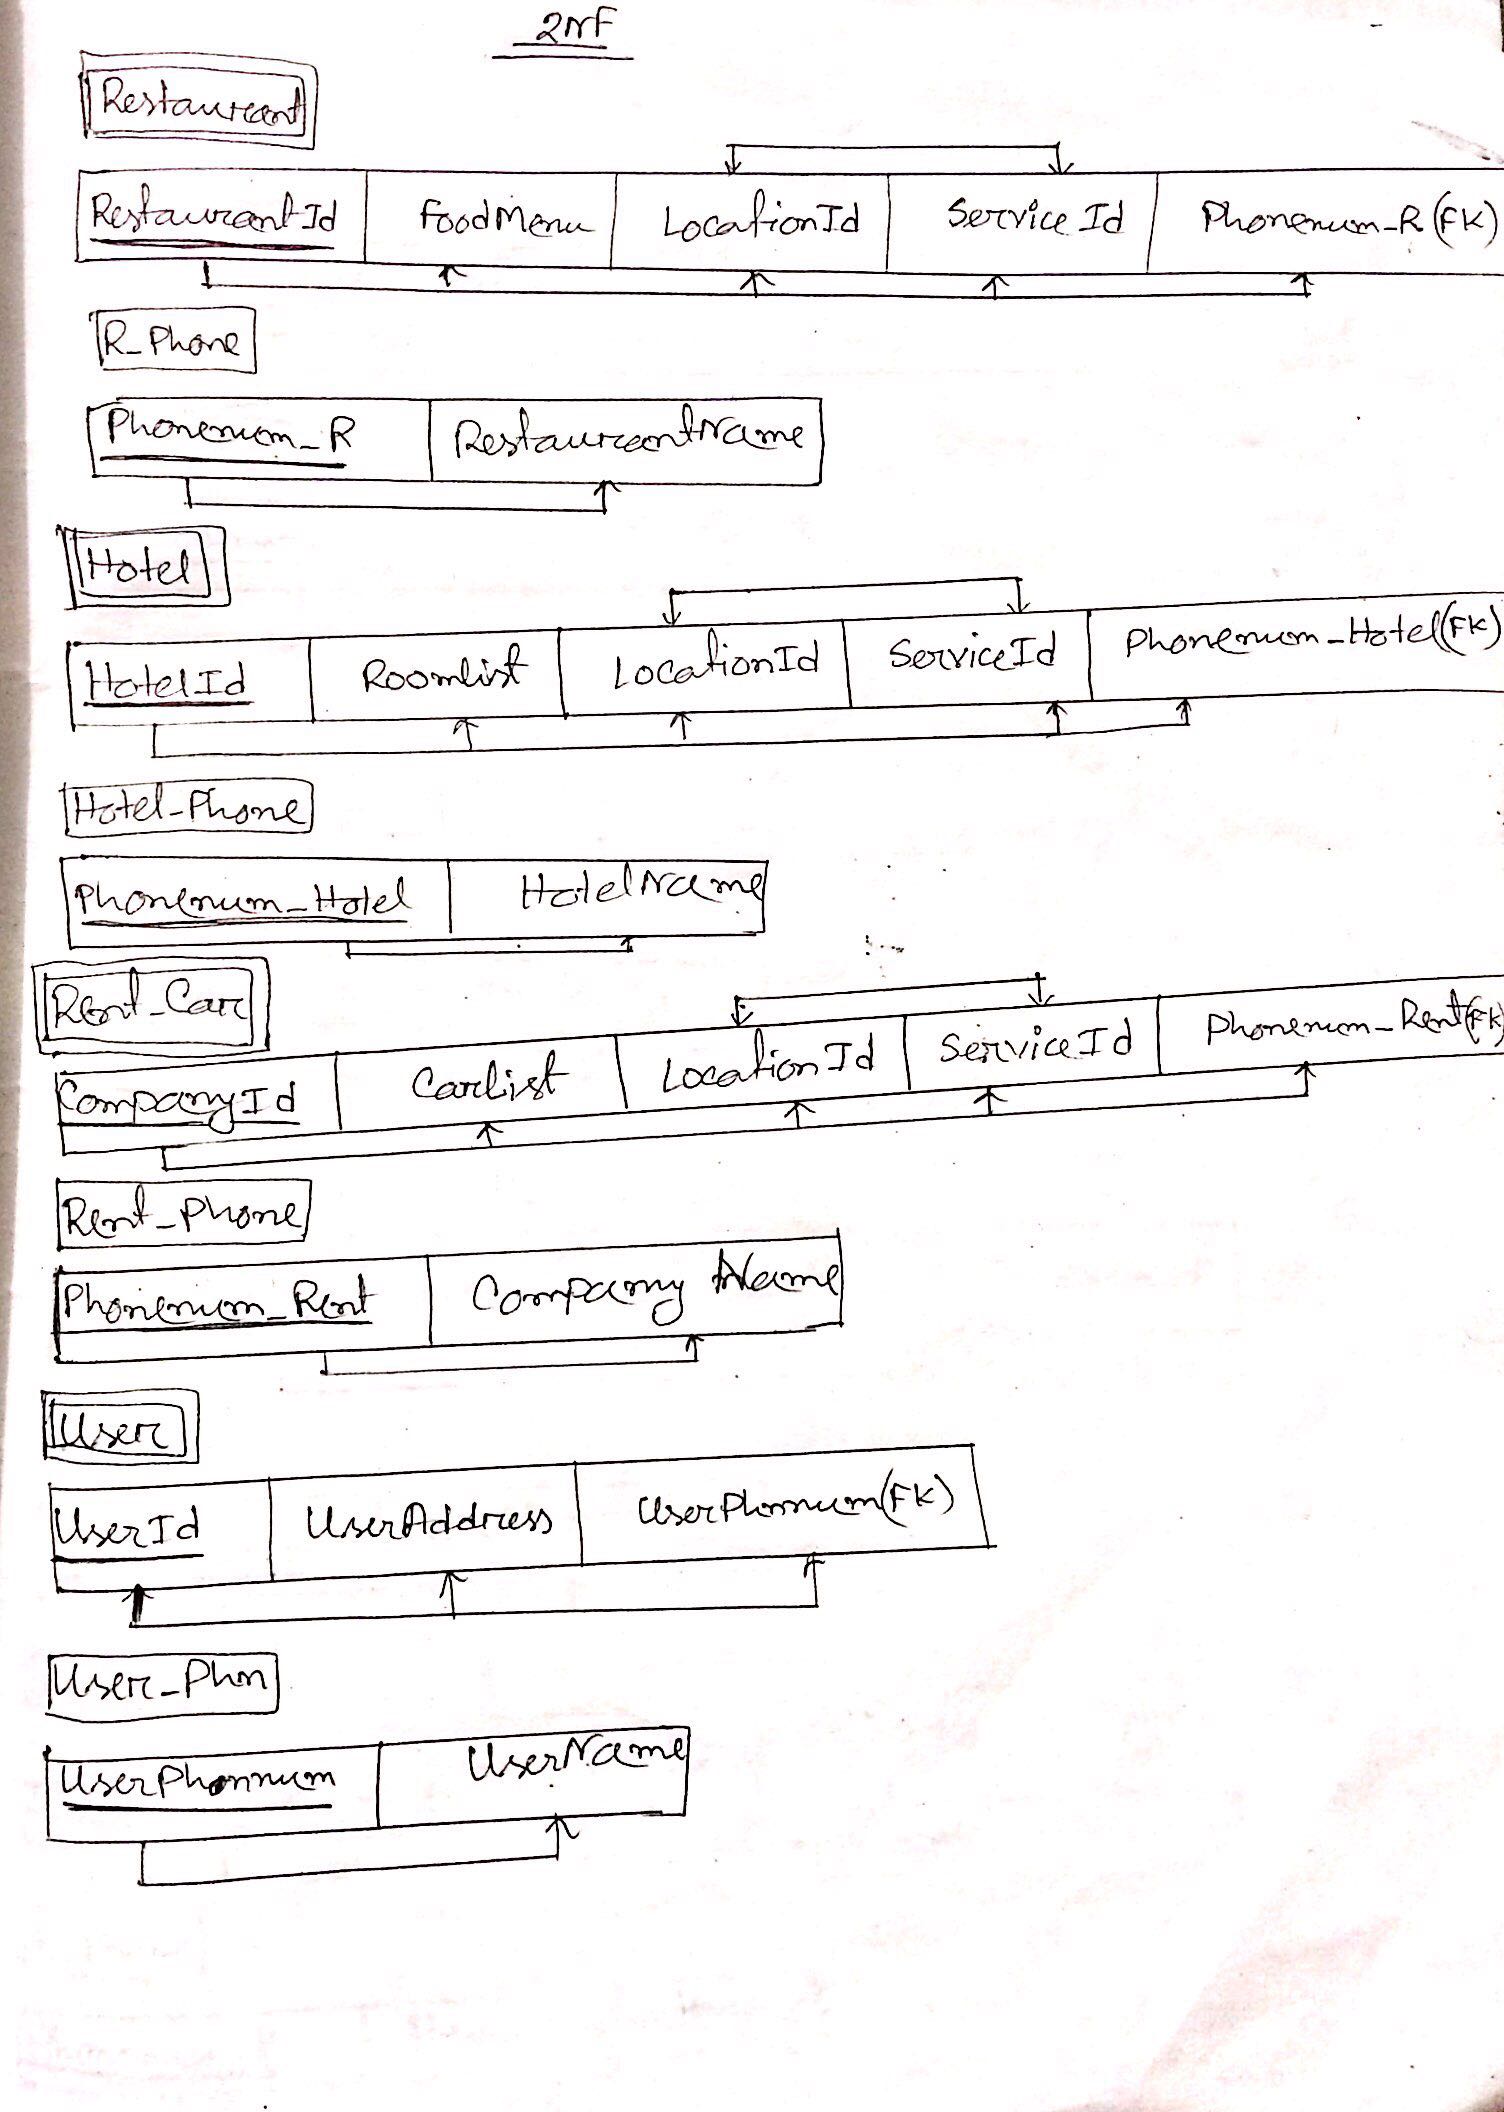 2NF
Restaurant
RestaurantId FoodMenu LocationId Service Id Phonenum_R (FK)
R_Phone
Phonenum_R RestaurantName
Hotel
HotelId Roomlist LocationId ServiceId Phonenum_Hotel(FK)
Hotel_Phone
Phonenum_Hotel HotelName
Rent_Car
CompanyId Carlist LocationId ServiceId Phonenum_Rent(FK)
Rent_Phone
Phonenum_Rent Company Name
User
UserId UserAddress UserPhonnum(FK)
User_Phon
UserPhonnum UserName